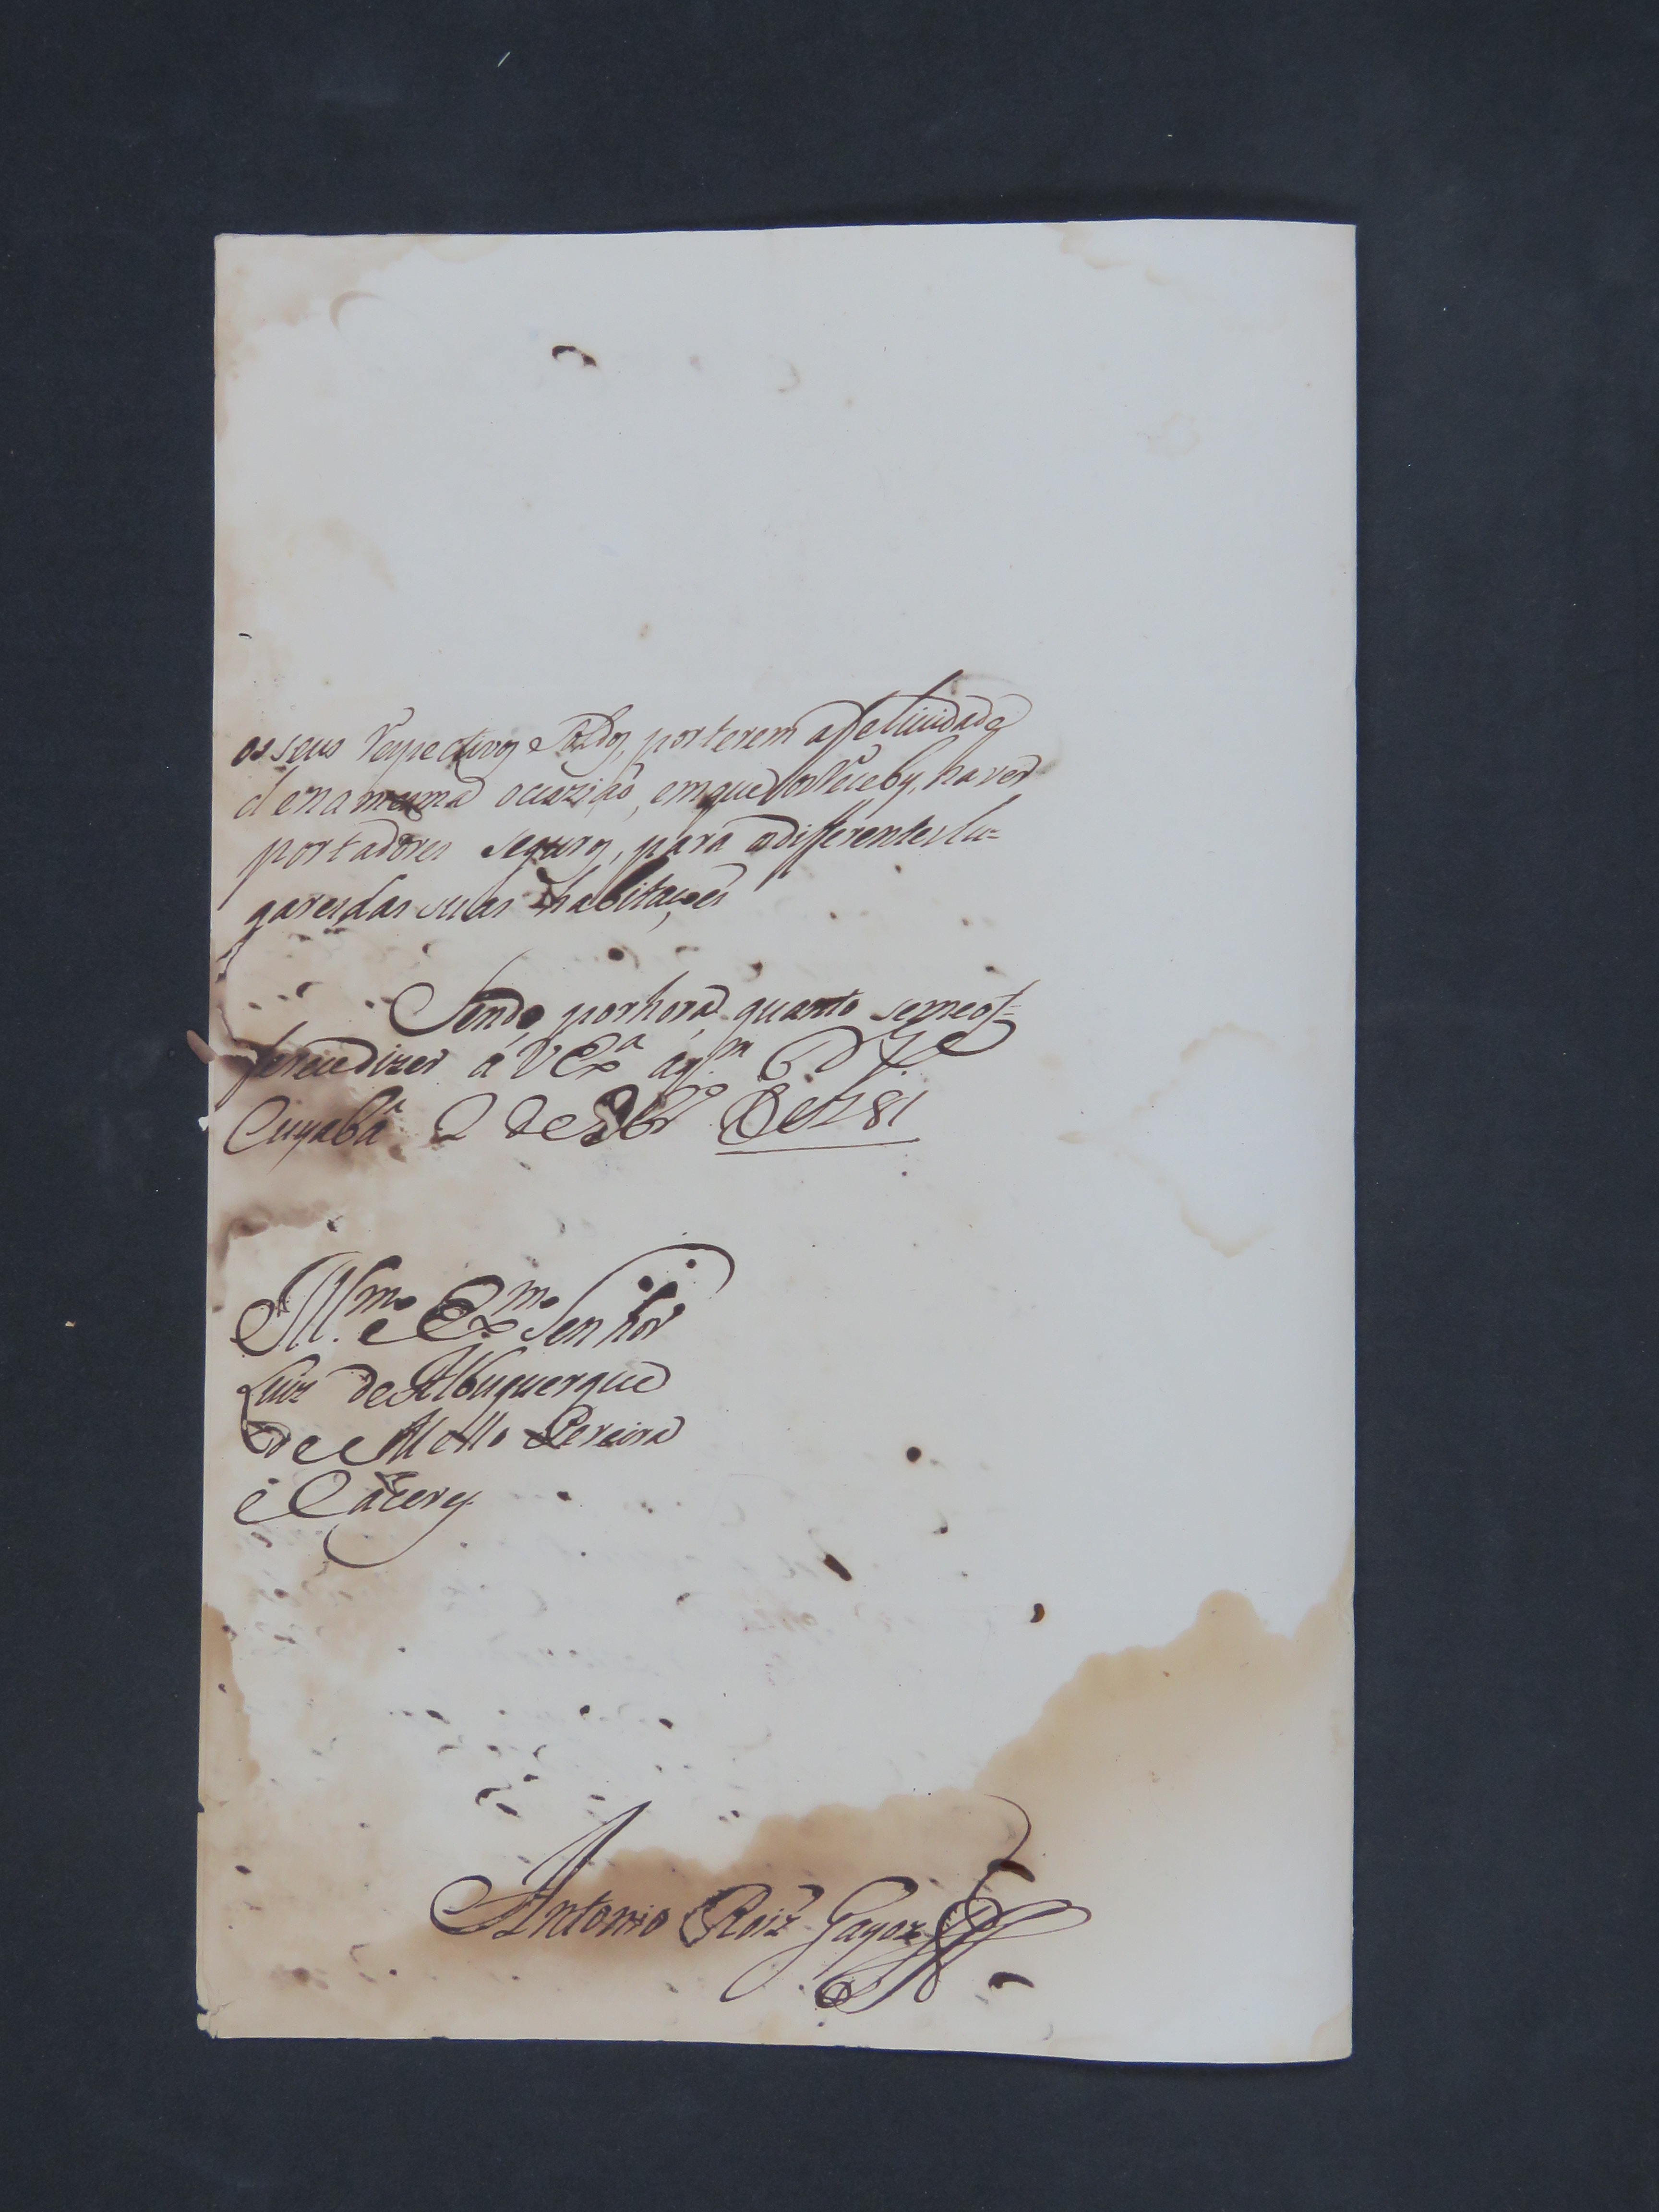 os seus respectivos soldos, por terem a felicidade
de na mesma occazião, em que os recebi, haver
portadores seguros, para os differentes lu=
gares das suas habitaçoes
Sendo por hora quanto se me of=
ferece dizer a V Ex.ª a q.m D.s g.e
Cuyabá 2 de 8br.º de 1781
Ill.mo e Ex.mo Senhor
Luiz de Albuquerque
de Mello Pereira
e Caceres
Antonio Roiz Gayozo